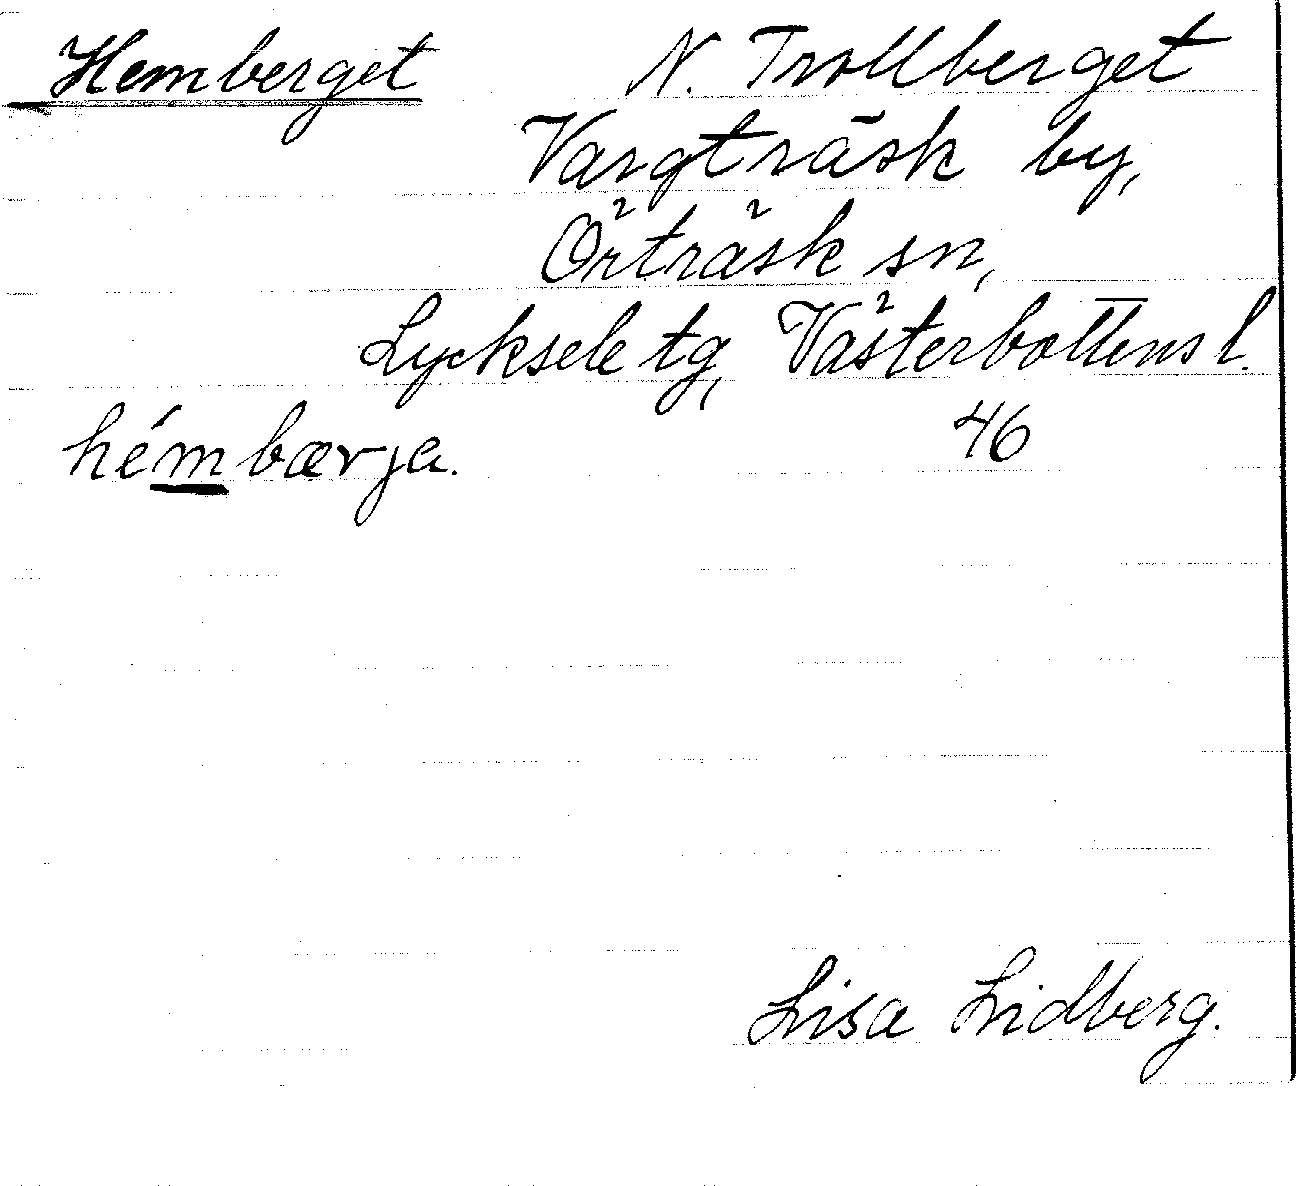 Hemberget N. Trollberget
Vargträsk by,
Örträsk sn,
Lycksele tg, Västerbottens l.
hémbærja. 46
Lisa Lidberg.